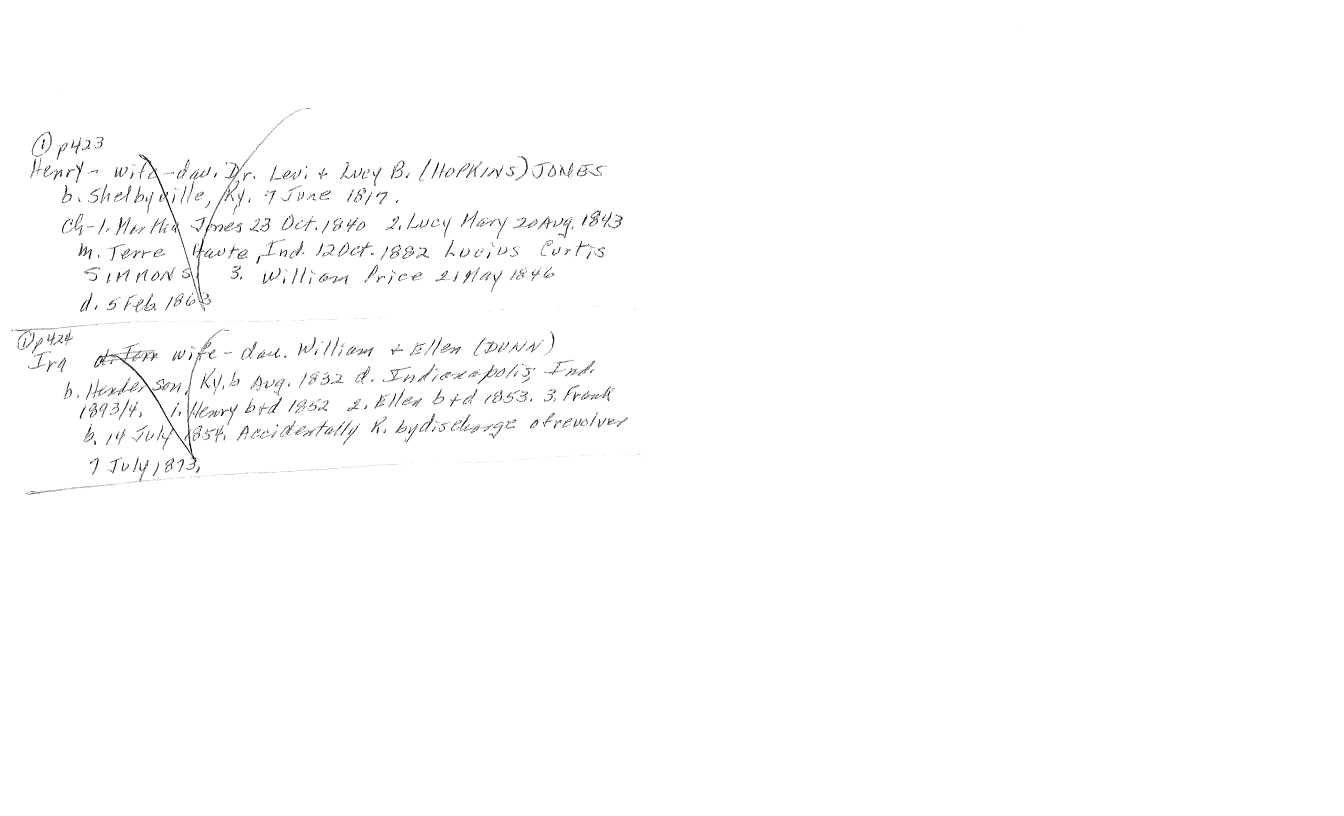 ① p423
Henry - wife - dau. Dr. Levi + Lucy B. (HOPKINS) JONES
b. Shelbyville, Ky. 7 June 1817.
Ch-1. Martha Jones 23 Oct. 1840 2. Lucy Mary 20 Aug. 1843
m. Terre Haute, Ind. 12 Oct. 1882 Lucius Curtis
SIMMONS 3. William Price 21 May 1846
d. 5 Feb. 1863
① p424
Ira d. Terr wife - dau. William + Ellen (DUNN)
b. Henderson, Ky. 6 Aug. 1832 d. Indianapolis, Ind.
1893/4. 1. Henry b+d 1852 2. Ellen b+d 1853. 3. Frank
b. 14 July 1854. Accidentally K. by discharge of revolver
7 July 1873.